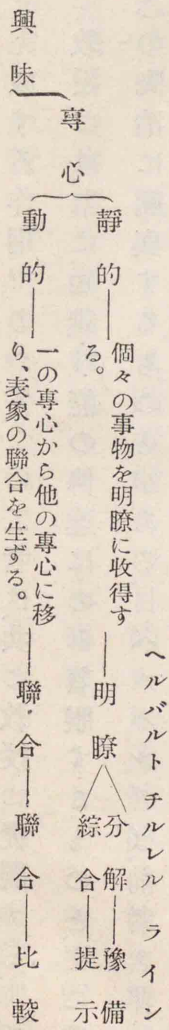 ヘルバルト チルレル ライン
靜的――個々の事物を明瞭に收得する。――明瞭 分解――豫備
綜合――提示
專心
動的――一の專心から他の專心に移り、表象の聯合を生ずる。――聯合――聯合――比較
興味